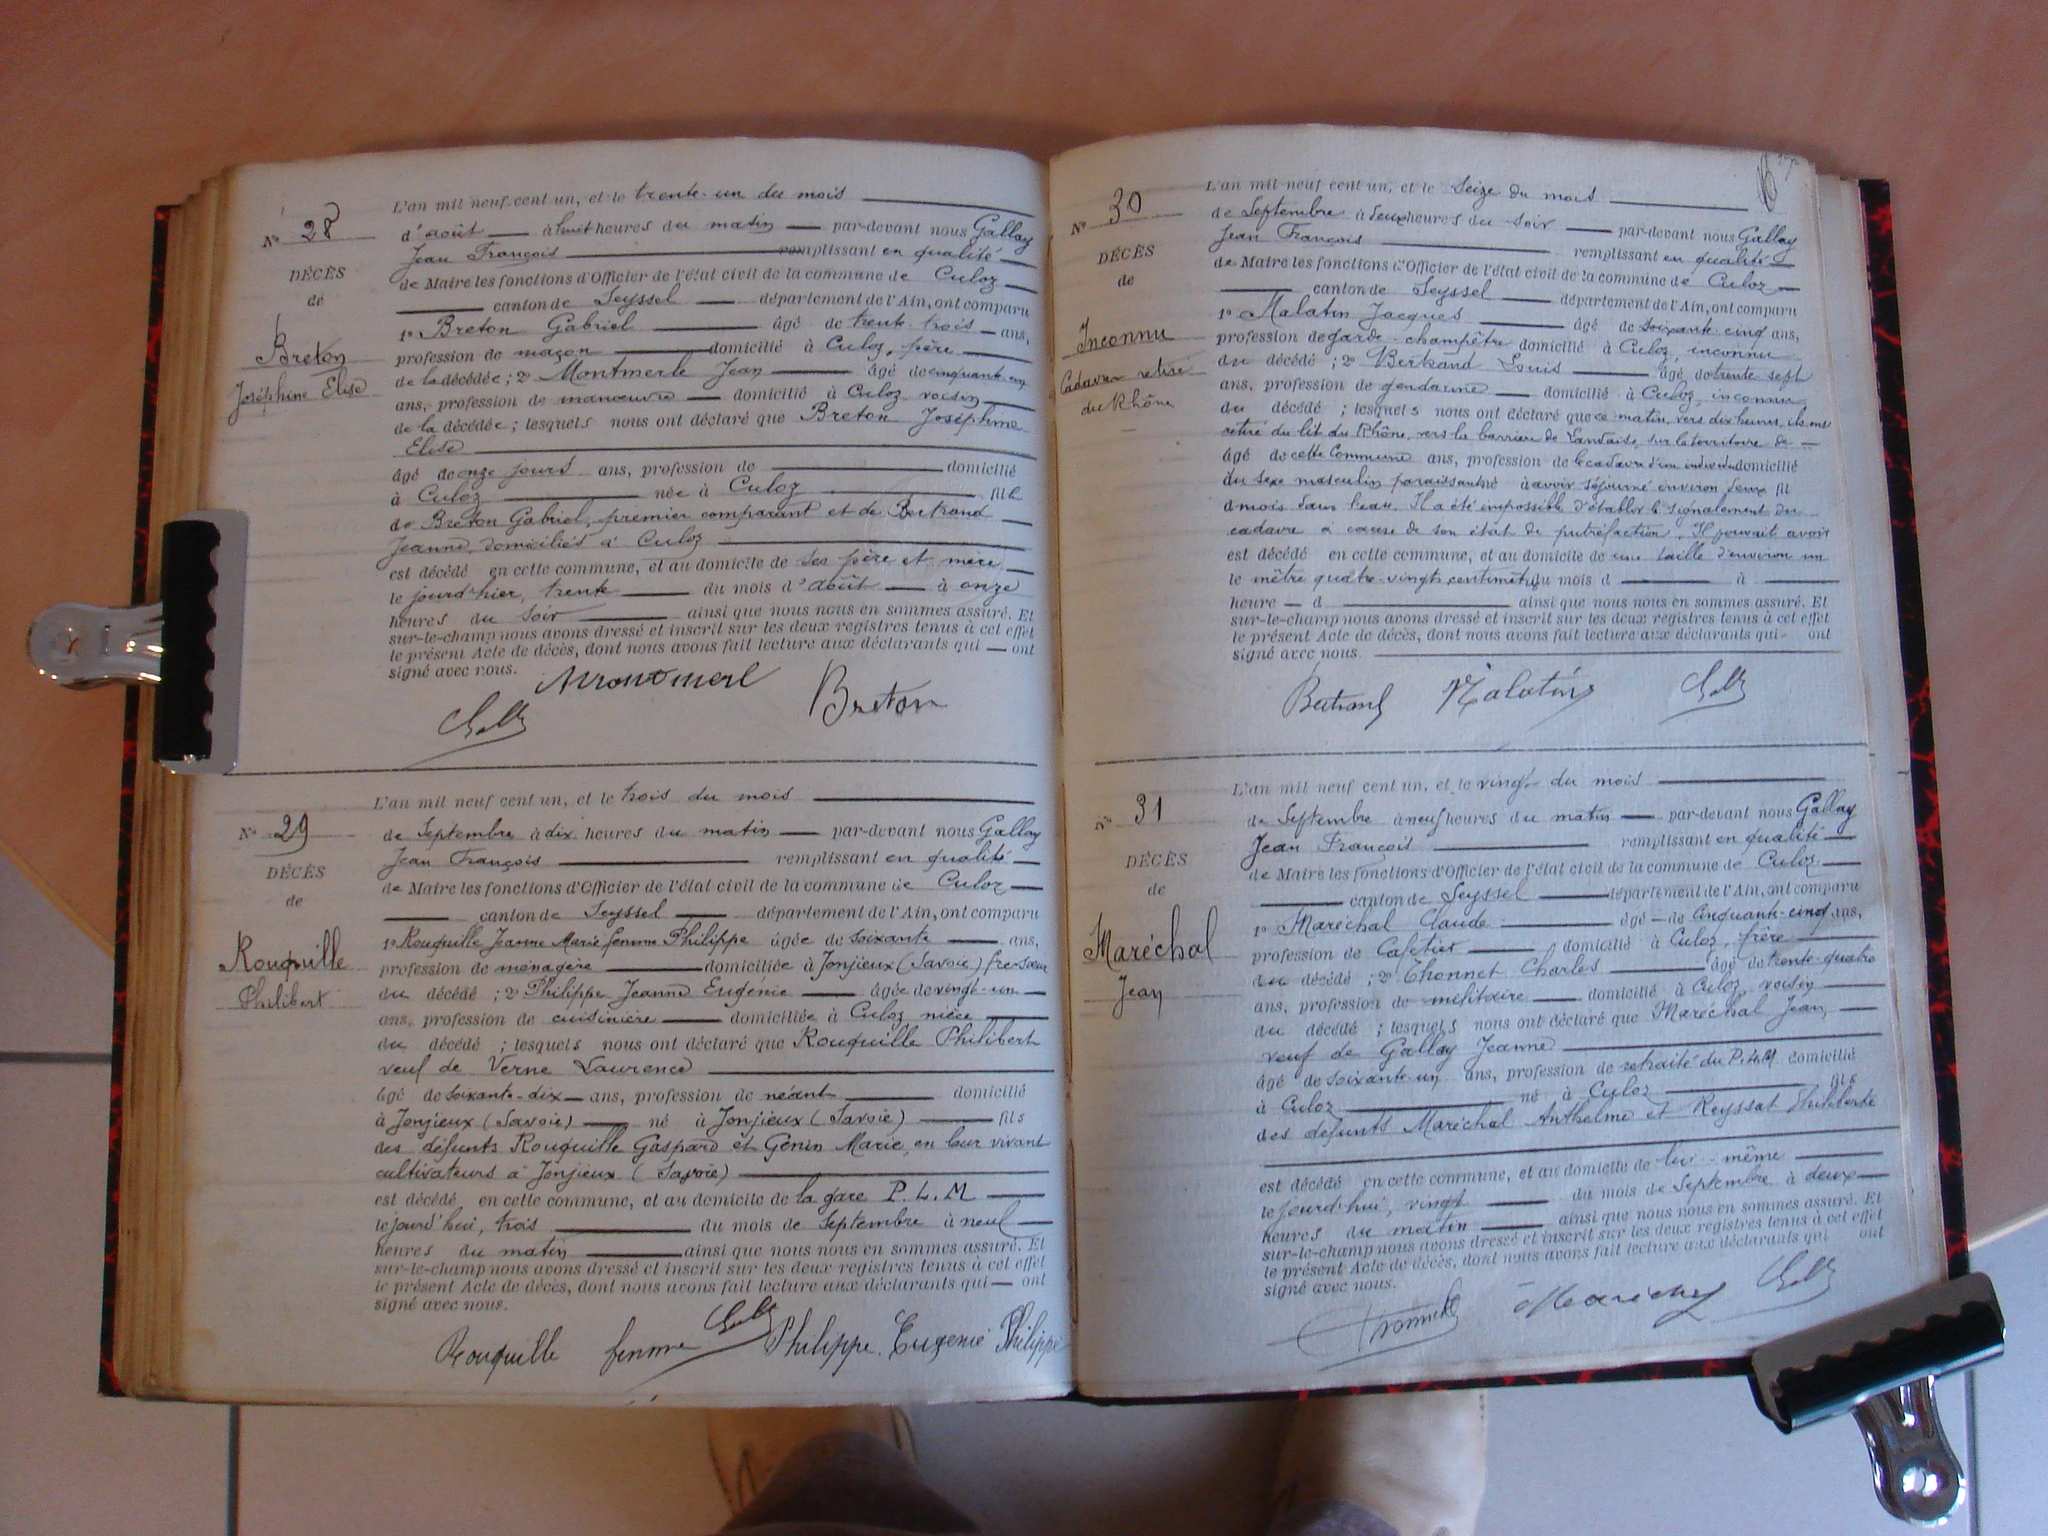 N° 28
DÉCÈS
de
Breton
Joséphine Elise
L'an mil neuf cent un, et le trente-un du mois
d'août à huit heures du matin par-devant nous Gallay
Jean François remplissant en qualité
de Maire les fonctions d'Officier de l'état civil de la commune de Culoz
canton de Seyssel département de l'Ain, ont comparu
1° Breton Gabriel âgé de trente-trois ans,
profession de maçon domicilié à Culoz, père
de la décédée ; 2° Montmerle Jean âgé de cinquante-un
ans, profession de manœuvre domicilié à Culoz voisin
de la décédée ; lesquels nous ont déclaré que Breton Joséphine
Elise
âgé de onze jours ans, profession de domicilié
à Culoz née à Culoz fille
de Breton Gabriel, premier comparant et de Bertrand
Jeanne, domiciliés à Culoz
est décédé en cette commune, et au domicile de ses père et mère
le jourd'hier, trente du mois d'août à onze
heures du soir ainsi que nous nous en sommes assuré. Et
sur-le-champ nous avons dressé et inscrit sur les deux registres tenus à cet effet
le présent Acte de décès, dont nous avons fait lecture aux déclarants qui ont
signé avec nous.
Breton
N° 29
DÉCÈS
de
Rouquille
Philibert
L'an mil neuf cent un, et le trois du mois
de Septembre à dix heures du matin par-devant nous Gallay
Jean François remplissant en qualité
de Maire les fonctions d'Officier de l'état civil de la commune de Culoz
canton de Seyssel département de l'Ain, ont comparu
1° Rouquille Jeanne Marie femme Philippe âgée de soixante ans,
profession de ménagère domiciliée à Jonjieux (Savoie) sœur
du décédé ; 2° Philippe Jeanne Eugénie âgée de vingt-un
ans, profession de cuisinière domiciliée à Culoz nièce
du décédé ; lesquels nous ont déclaré que Rouquille Philibert
veuf de Verne Laurence
âgé de soixante-dix ans, profession de néant domicilié
à Jonjieux (Savoie) né à Jonjieux (Savoie) fils
des défunts Rouquille Gaspard et Génin Marie, en leur vivant
cultivateurs à Jonjieux (Savoie)
est décédé en cette commune, et au domicile de la gare P. L. M
le jourd'hui, trois du mois de Septembre à neuf
heures du matin ainsi que nous nous en sommes assuré. Et
sur-le-champ nous avons dressé et inscrit sur les deux registres tenus à cet effet
le présent Acte de décès, dont nous avons fait lecture aux déclarants qui ont
signé avec nous.
Rouquille femme Philippe. Eugénie Philippe
N° 30
DÉCÈS
de
Inconnu
Cadavre retiré
du Rhône
L'an mil neuf cent un, et le seize du mois
de Septembre à deux heures du soir par-devant nous Gallay
Jean François remplissant en qualité
de Maire les fonctions d'Officier de l'état civil de la commune de Culoz
canton de Seyssel département de l'Ain, ont comparu
1° Malatin Jacques âgé de soixante-cinq ans,
profession de garde-champêtre domicilié à Culoz, inconnu
du décédé ; 2° Bertrand Louis âgé de trente-sept
ans, profession de gendarme domicilié à Culoz, inconnu
du décédé ; lesquels nous ont déclaré que ce matin, vers dix heures, ils ont
retiré du lit du Rhône, vers la barrière de Landaise, sur le territoire de
âgé de cette Commune ans, profession de le cadavre d'un individu domicilié
du sexe masculin paraissant né à avoir séjourné environ deux fil
d mois dans l'eau. Il a été impossible d'établir le signalement du
cadavre à cause de son état de putréfaction. Il pouvait avoir
est décédé en cette commune, et au domicile de une taille d'environ un
le mètre quatre-vingts centimètres du mois d à
heure d ainsi que nous nous en sommes assuré. Et
sur-le-champ nous avons dressé et inscrit sur les deux registres tenus à cet effet
le présent Acte de décès, dont nous avons fait lecture aux déclarants qui ont
signé avec nous.
Bertrand Malatin
N° 31
DÉCÈS
de
Maréchal
Jean
L'an mil neuf cent un, et le vingt du mois
de Septembre à neuf heures du matin par-devant nous Gallay
Jean François remplissant en qualité
de Maire les fonctions d'Officier de l'état civil de la commune de Culoz
canton de Seyssel département de l'Ain, ont comparu
1° Maréchal Claude âgé de Cinquante-cinq ans,
profession de Cafetier domicilié à Culoz, frère
du décédé ; 2° Thonnet Charles âgé de trente-quatre
ans, profession de militaire domicilié à Culoz, voisin
du décédé ; lesquels nous ont déclaré que Maréchal Jean,
veuf de Gallay Jeanne
âgé de soixante-un ans, profession de retraité du P.L.M. domicilié
à Culoz né à Culoz fils
des défunts Maréchal Anthelme et Reyssat Philiberte
est décédé en cette commune, et au domicile de lui-même
le jourd'hui, vingt du mois de Septembre à deux
heures du matin ainsi que nous nous en sommes assuré. Et
sur-le-champ nous avons dressé et inscrit sur les deux registres tenus à cet effet
le présent Acte de décès, dont nous avons fait lecture aux déclarants qui ont
signé avec nous.